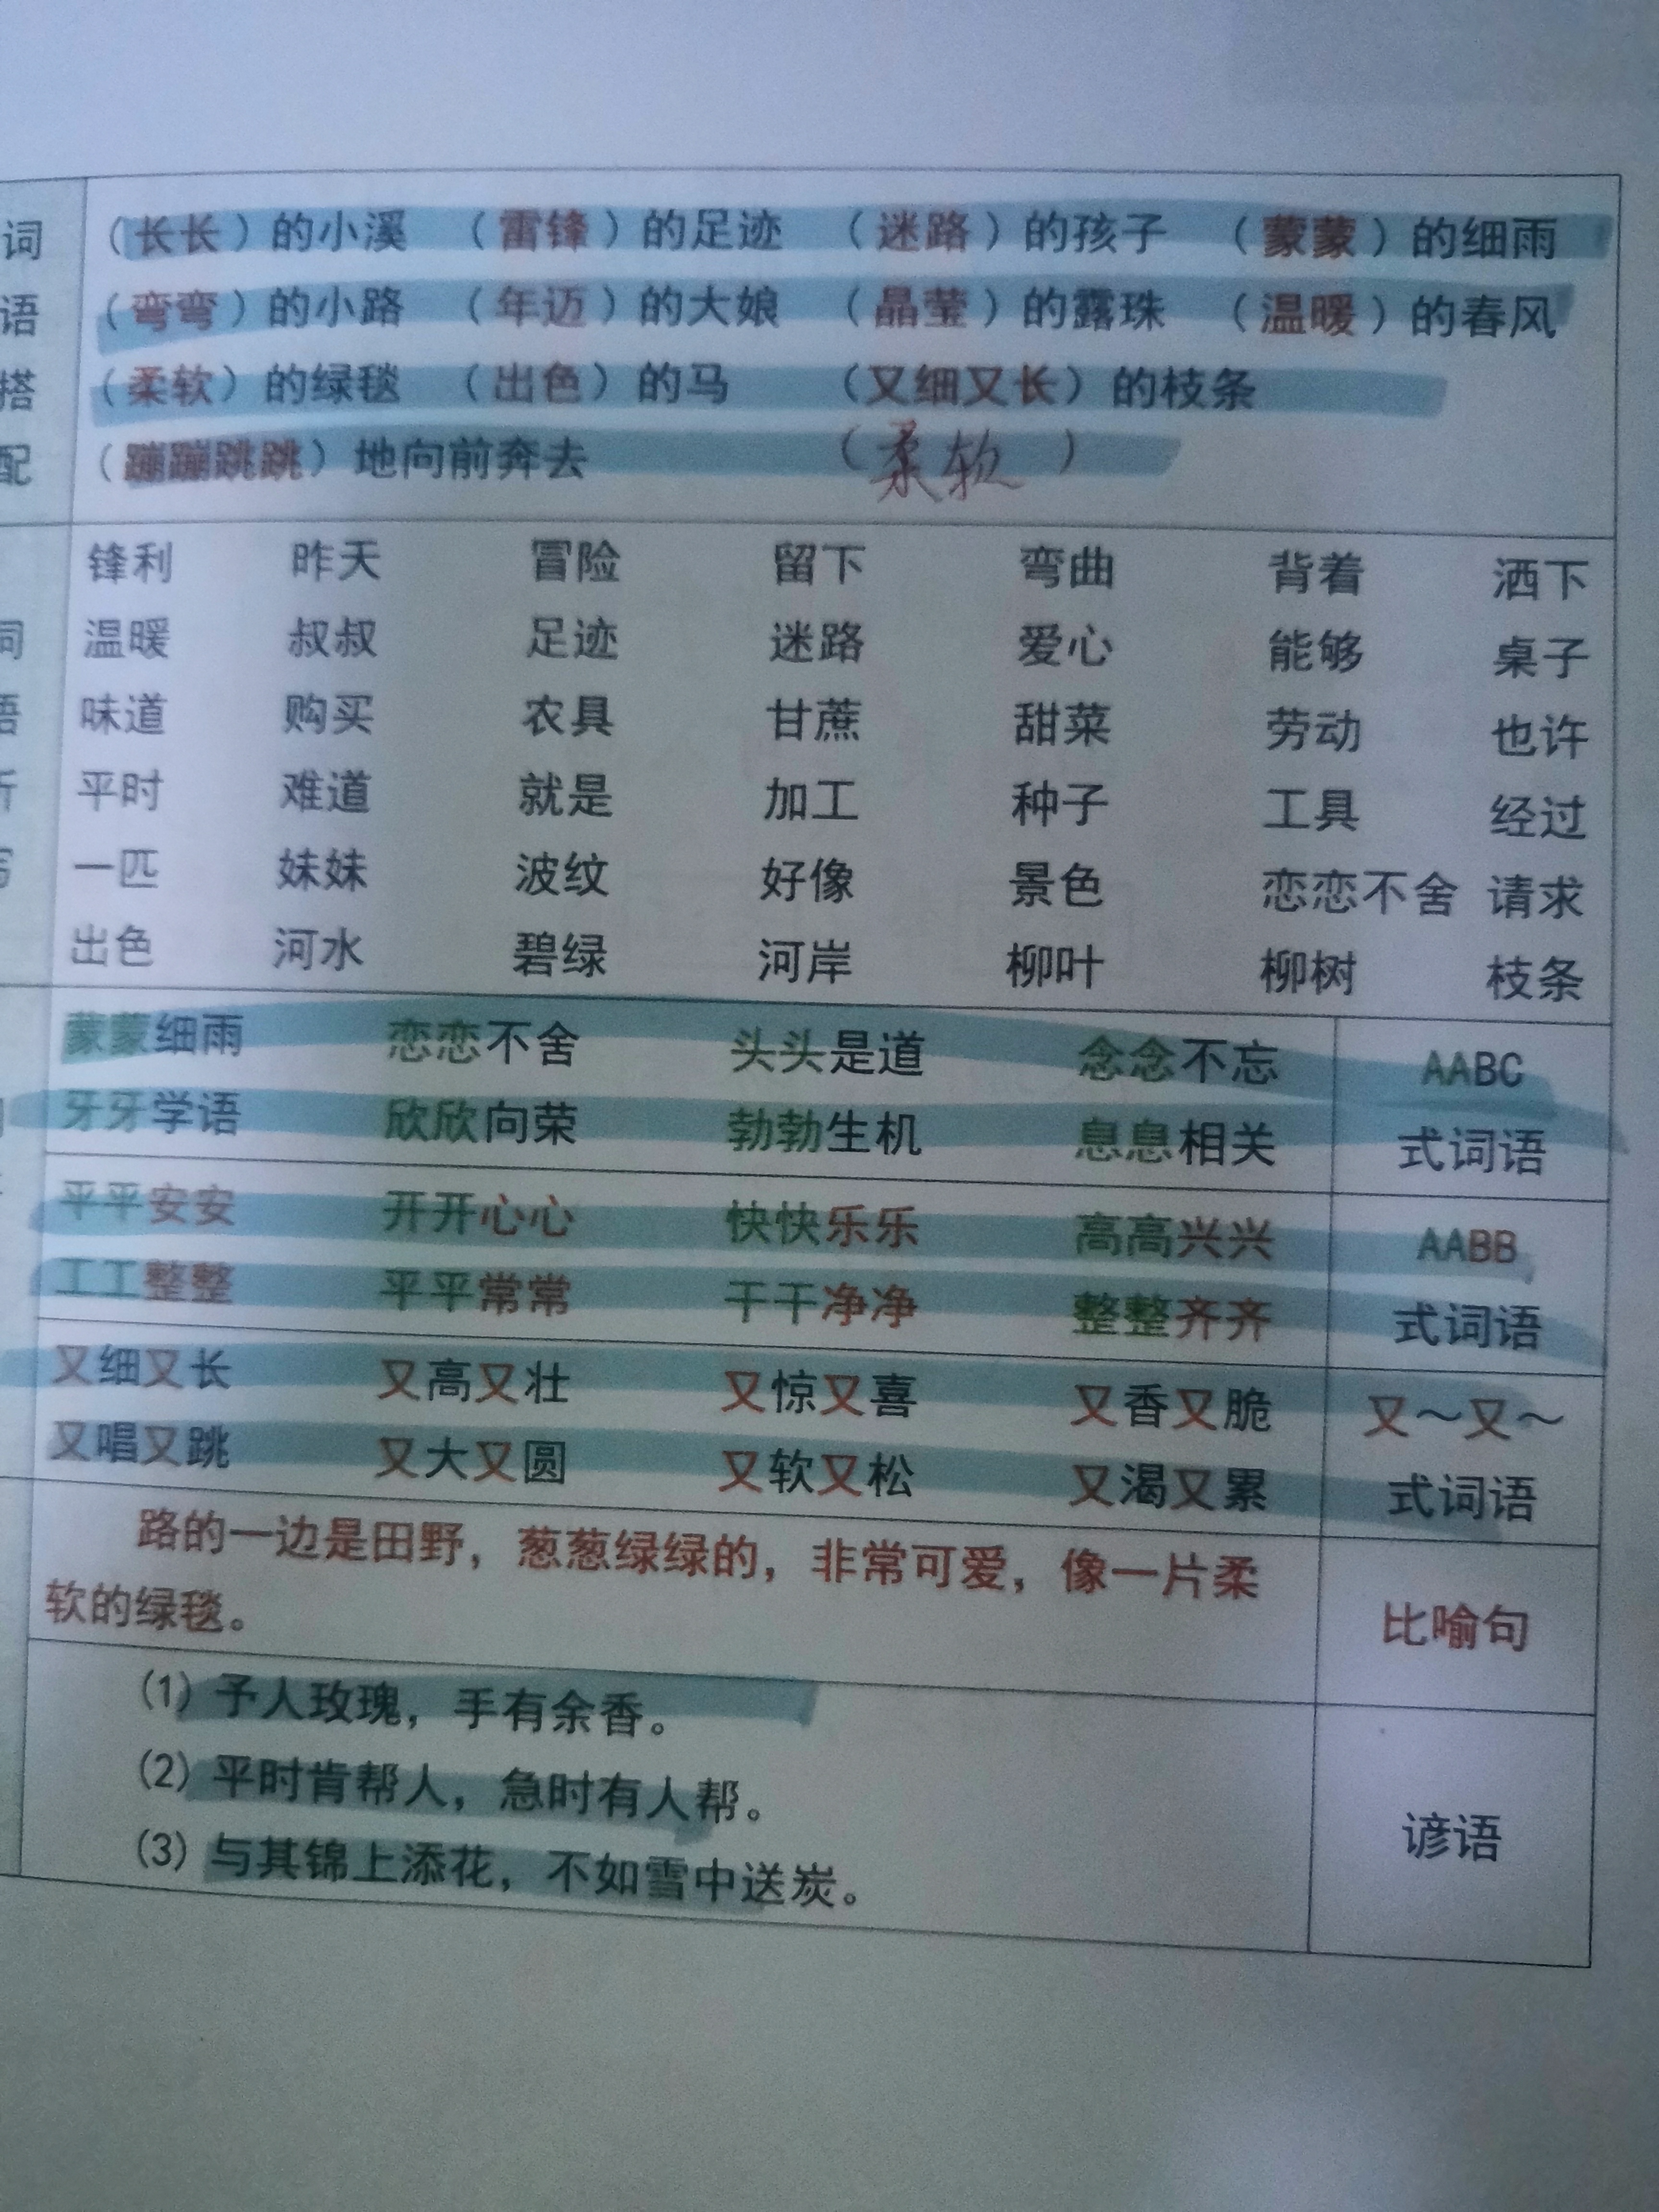 词 （长长）的小溪 （雷锋）的足迹 （迷路）的孩子 （蒙蒙）的细雨
语 （弯弯）的小路 （年迈）的大娘 （晶莹）的露珠 （温暖）的春风
搭 （柔软）的绿毯 （出色）的马 （又细又长）的枝条
配 （蹦蹦跳跳）地向前奔去 （柔软 ）
锋利 昨天 冒险 留下 弯曲 背着 洒下
温暖 叔叔 足迹 迷路 爱心 能够 桌子
味道 购买 农具 甘蔗 甜菜 劳动 也许
平时 难道 就是 加工 种子 工具 经过
一匹 妹妹 波纹 好像 景色 恋恋不舍 请求
出色 河水 碧绿 河岸 柳叶 柳树 枝条
蒙蒙细雨 恋恋不舍 头头是道 念念不忘 AABC
牙牙学语 欣欣向荣 勃勃生机 息息相关 式词语
平平安安 开开心心 快快乐乐 高高兴兴 AABB
工工整整 平平常常 干干净净 整整齐齐 式词语
又细又长 又高又壮 又惊又喜 又香又脆 又～又～
又唱又跳 又大又圆 又软又松 又渴又累 式词语
路的一边是田野，葱葱绿绿的，非常可爱，像一片柔
软的绿毯。 比喻句
(1) 予人玫瑰，手有余香。
(2) 平时肯帮人，急时有人帮。
(3) 与其锦上添花，不如雪中送炭。 谚语